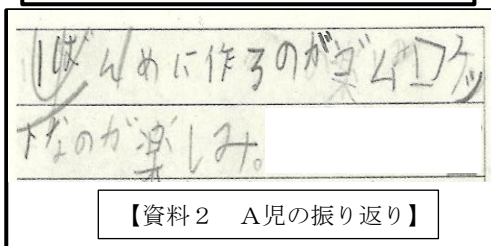 1ばんめに作るのがゴムロケッ
トなのが楽しみ。
【資料2 A児の振り返り】